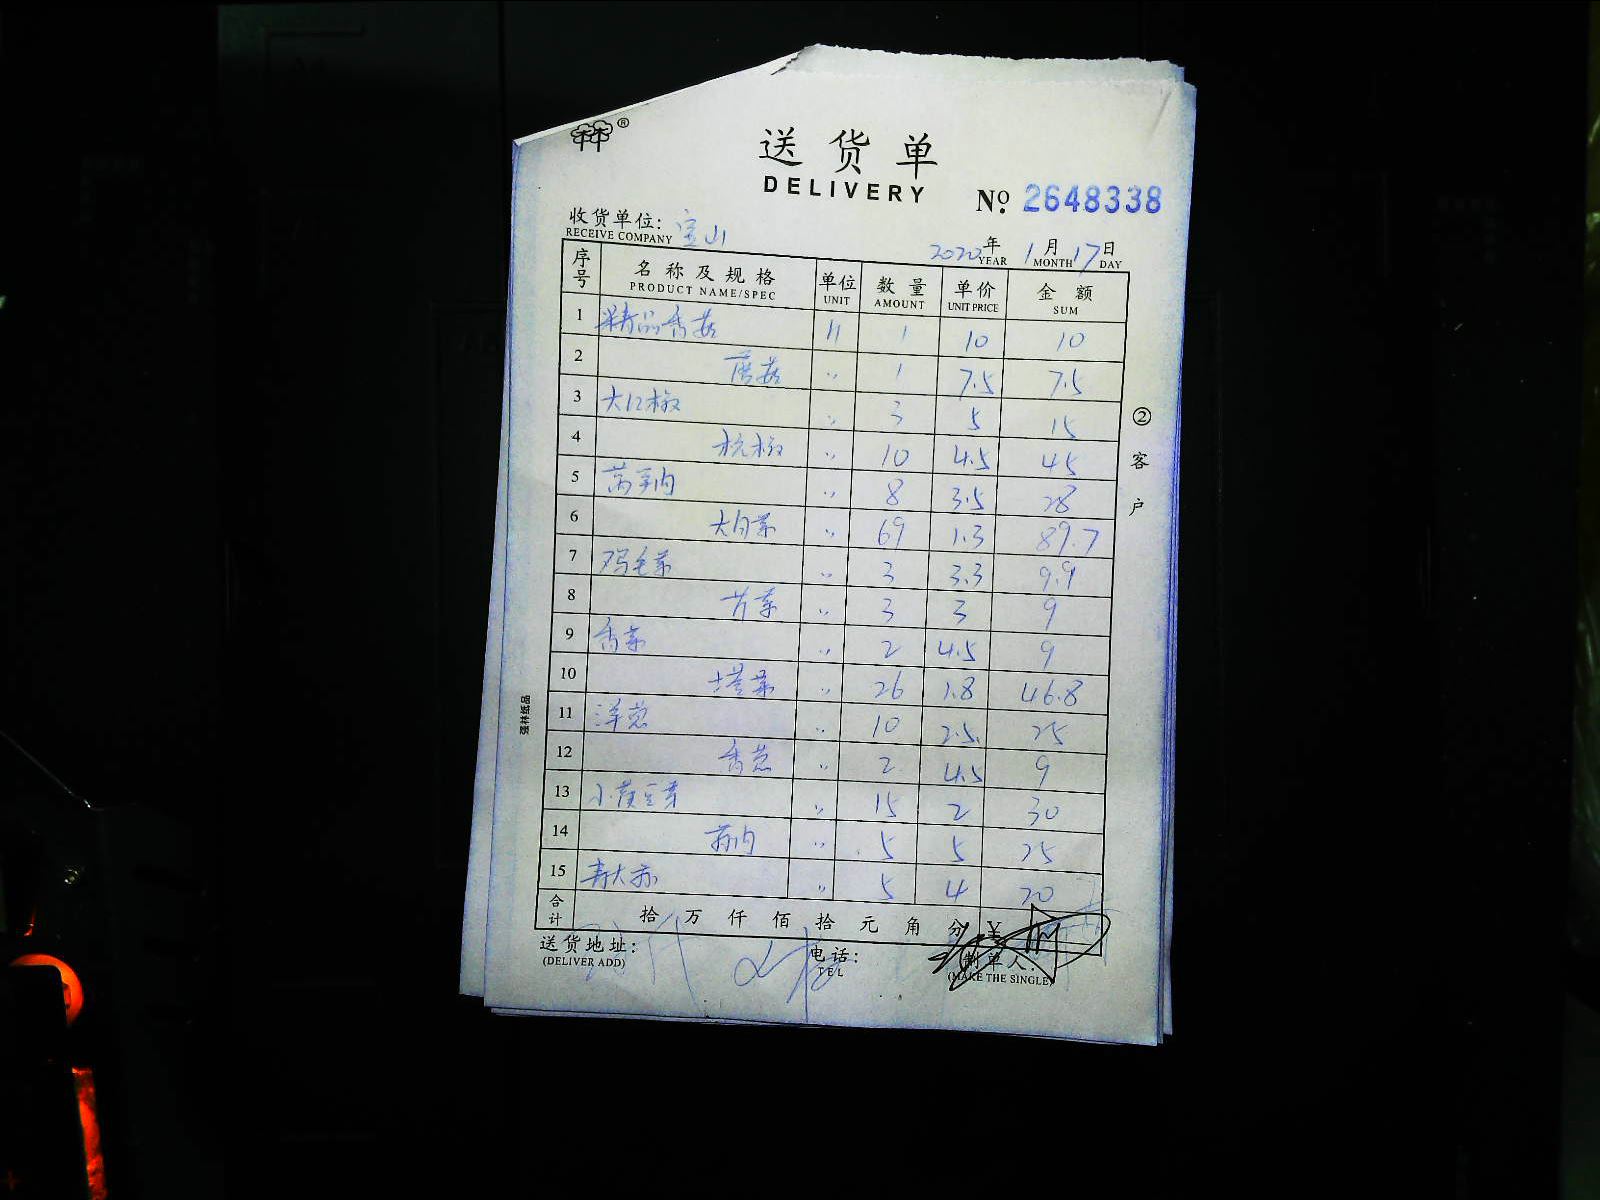 ®
送货单
DELIVERY
№ 2648338
收货单位: 宝山
RECEIVE COMPANY
2020年 1月 17日
YEAR MONTH DAY
序号 名称及规格 单位 数量 单价 金额
PRODUCT NAME/SPEC UNIT AMOUNT UNIT PRICE SUM
1 精品香菇 1 10 10
2 蘑菇 〃 1 7.5 7.5
3 大红椒 〃 3 5 15
4 杭椒 〃 10 4.5 45
5 莴笋肉 〃 8 3.5 28
6 大白菜 〃 69 1.3 89.7
7 鸡毛菜 〃 3 3.3 9.9
8 芹菜 〃 3 3 9
9 香菜 〃 2 4.5 9
10 塔菜 〃 26 1.8 46.8
11 洋葱 〃 10 2.5 25
12 香葱 〃 2 4.5 9
13 小黄豆芽 〃 15 2 30
14 〃 5 5 25
15 青大蒜 〃 5 4 20
合计 拾 万 仟 佰 拾 元 角 分 ¥
送货地址: 电话: 制单人:
(DELIVER ADD) TEL (MAKE THE SINGLE)
② 客户
强林纸品